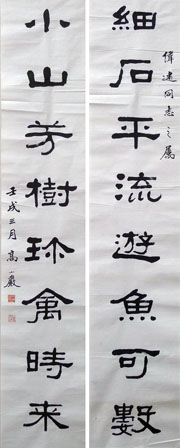 細石平流遊魚可數
偉建同志之屬
小山芳樹珎禽時来
壬戌三月高小巖